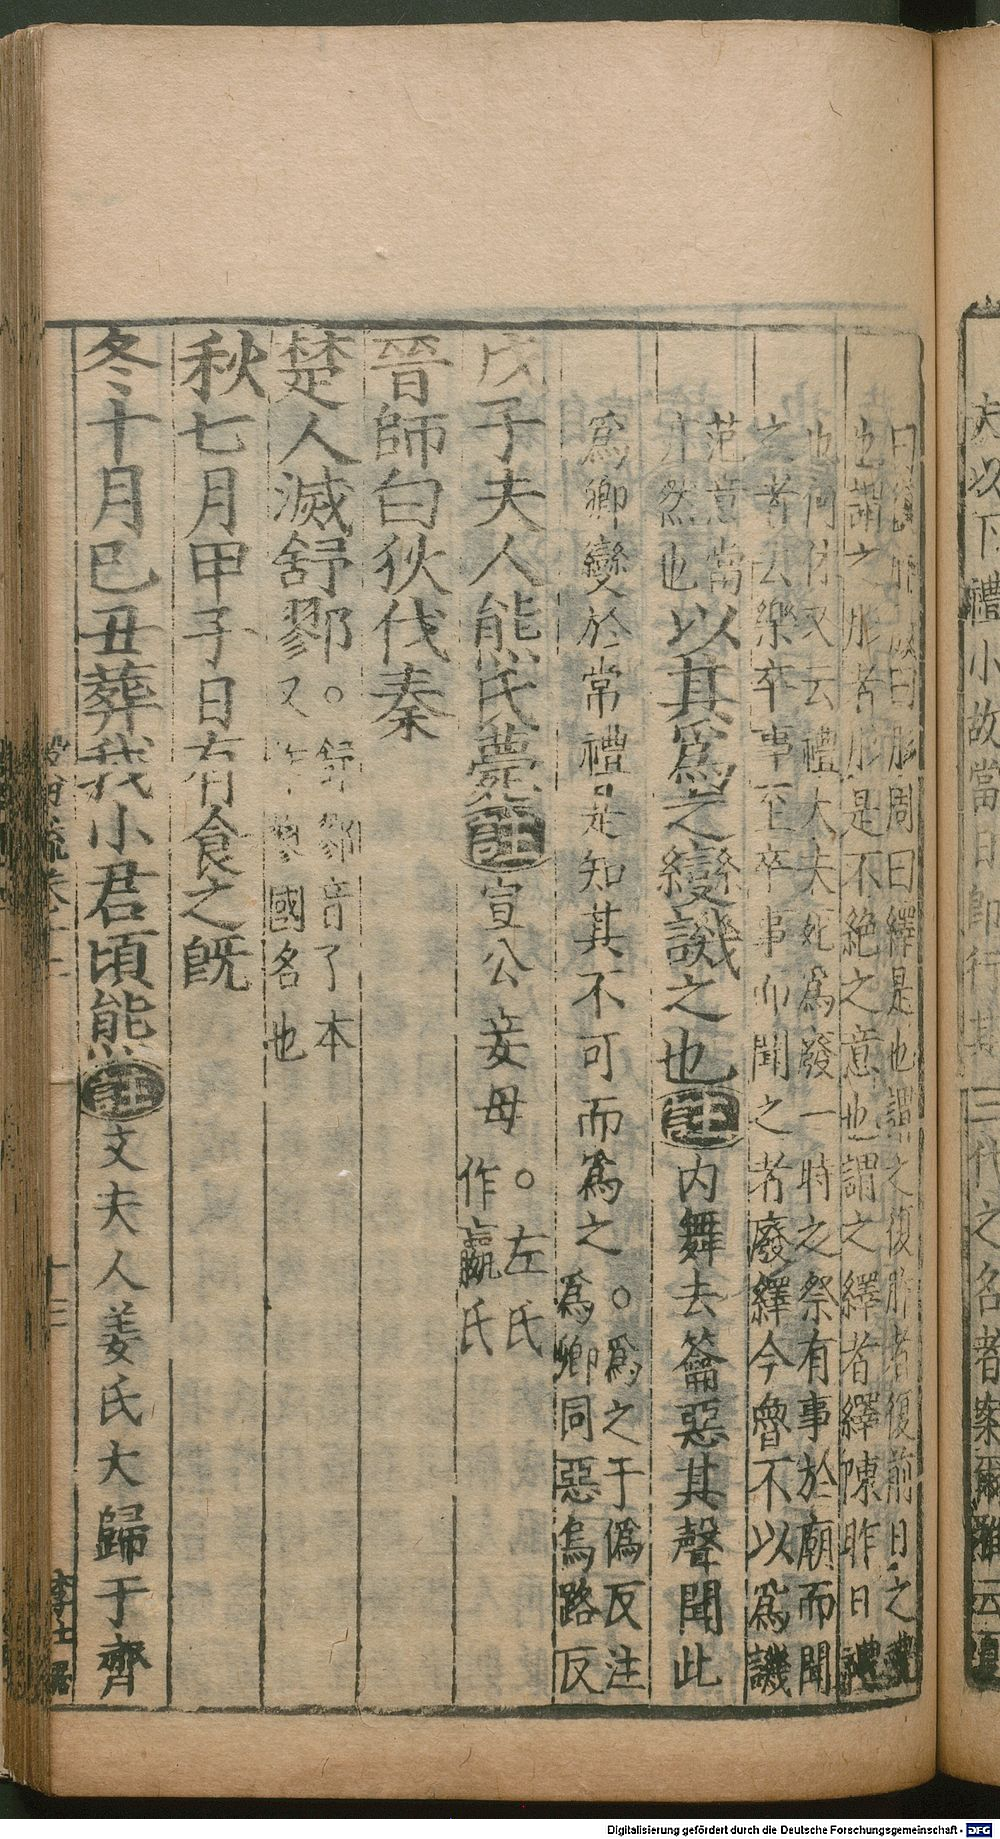 夫以下禮小故當日即行其三代之名者案爾雅云夏
曰復胙商曰肜周曰繹是也謂之復胙者復前日之禮
也謂之肜者肜是不絕之意也謂之繹者繹陳昨日禮
也何休又云禮大夫死爲廢一時之祭有事於廟而聞
之者去樂卒事至卒事而聞之者廢繹今魯不以爲譏
范意當
亦然也
以其爲之變譏之也註内舞去籥惡其聲聞此
爲卿變於常禮是知其不可而爲之。爲之于僞反注
爲卿同惡烏路反
戊子夫人熊氏薨註宣公妾母。左氏
作嬴氏
晉師白狄伐秦
楚人滅舒鄝。舒鄝音了本
又作蓼國名也
秋七月甲子日有食之既
冬十月巳丑葬我小君頃熊註文夫人姜氏大歸于齊
十三
Digitalisierung gefördert durch die Deutsche Forschungsgemeinschaft - DFG